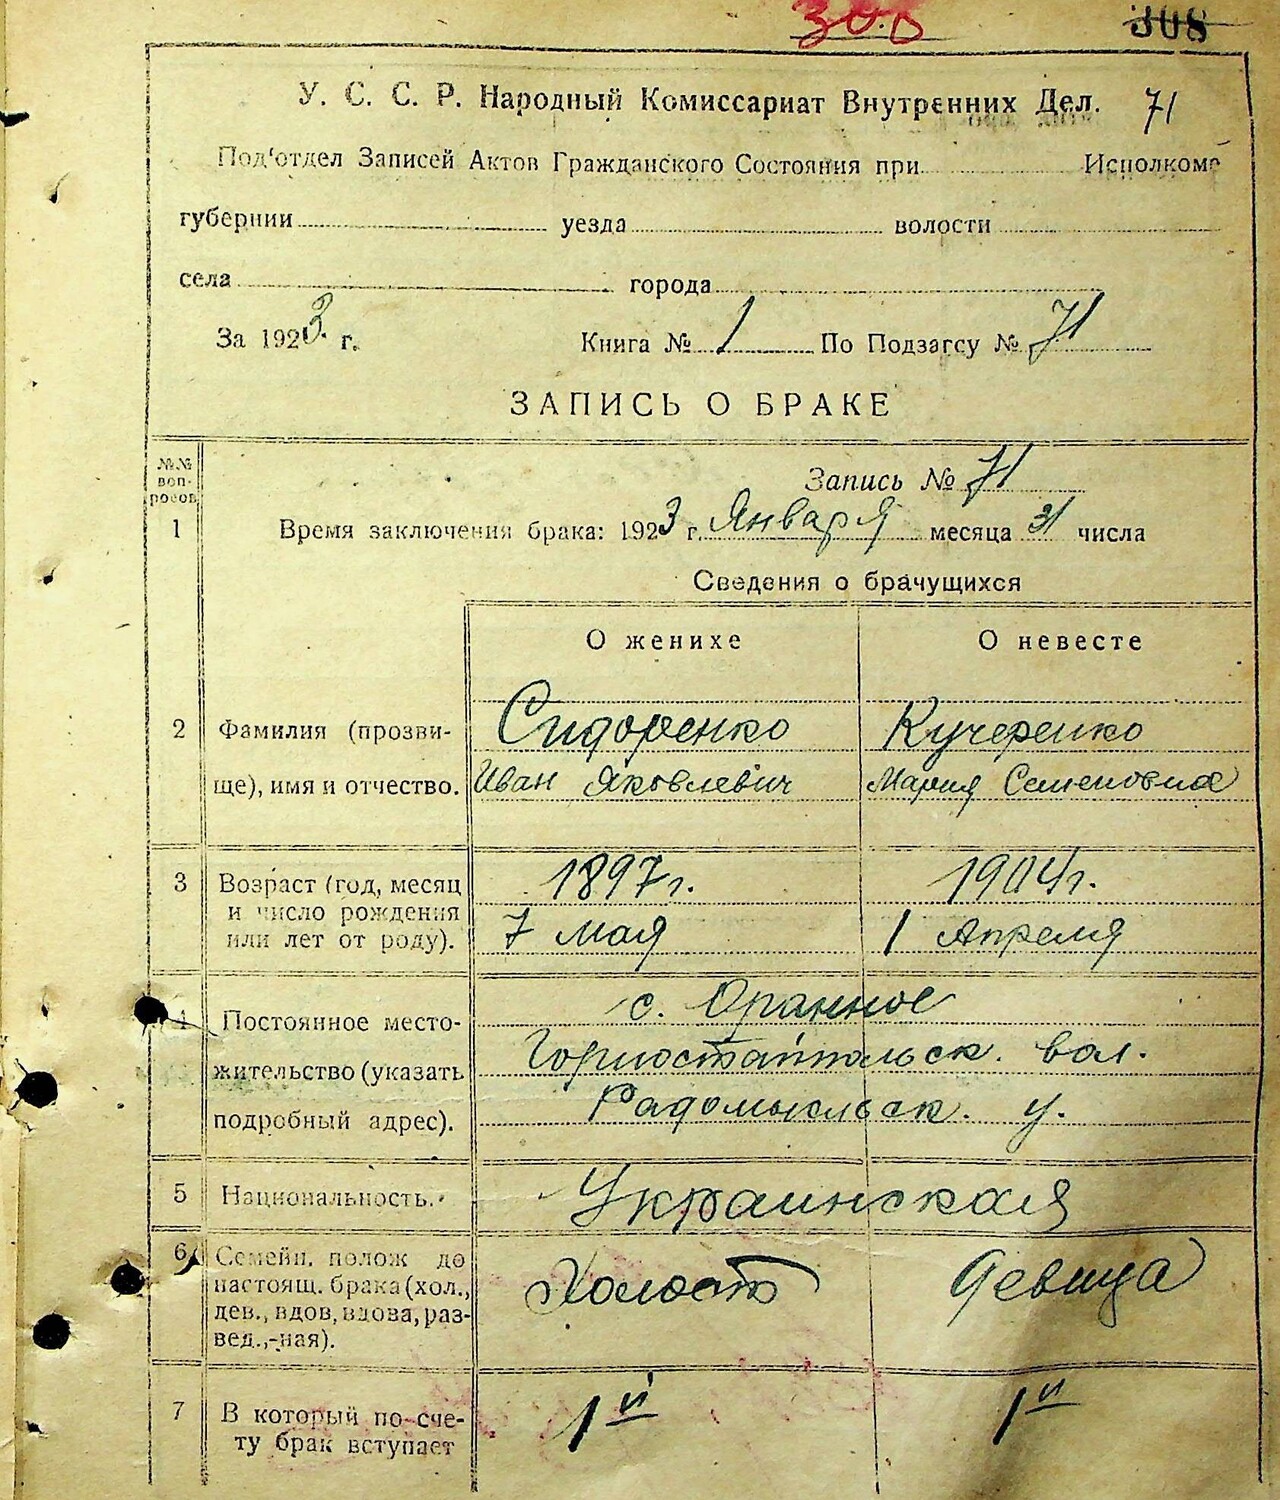 308 308
У. С. С. Р. Народный Комиссариат Внутренних Дел. 71
Под'отдел Записей Актов Гражданского Состояния при Исполкоме
губернии уезда волости
села города
За 1923 г. Книга № 1 По Подзагсу № 71
ЗАПИСЬ О БРАКЕ
№№ вопросов
Запись № 71
1 Время заключения брака: 1923 г. Января месяца 31 числа
Сведения о брачущихся
О женихе О невесте
2 Фамилия (прозви- Сидоренко Кучеренко
ще), имя и отчество. Иван Яковлевич Мария Семеновна
3 Возраст (год, месяц 1897 г. 1904 г.
и число рождения
или лет от роду). 7 мая 1 Апреля
с. Оранное
4 Постоянное место-
Горностайпольск. вол.
жительство (указать
Радомысльск. у.
подробный адрес).
5 Национальность. Украинская
6 Семейн. полож до
настоящ. брака (хол., Холост Девица
дев., вдов, вдова, раз-
вед.,-ная).
7 В который по сче- 1й 1й
ту брак вступает